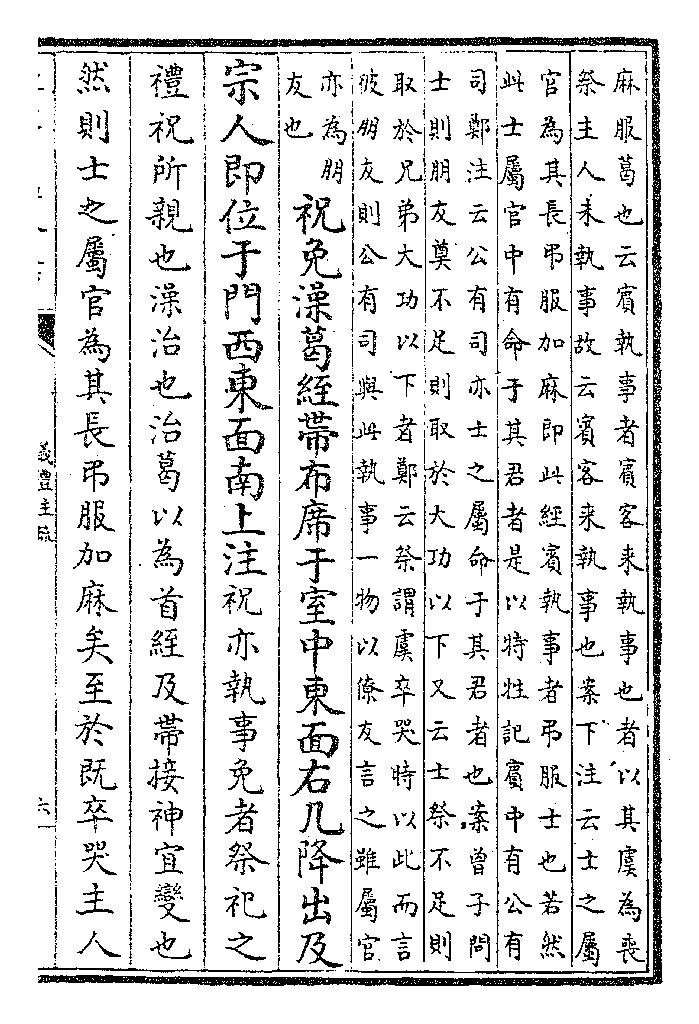 麻服葛也云賓執事者賓客来執事也者以其虞為喪
祭主人未執事故云賓客来執事也案下注云士之屬
官為其長弔服加麻即此經賓執事者弔服士也若然
此士屬官中有命于其君者是以特牲記賓中有公有
司鄭注云公有司亦士之屬命于其君者也案曾子問
士則朋友奠不足則取於大功以下又云士祭不足則
取於兄弟大功以下者鄭云祭謂虞卒哭時以此而言
彼朋友則公有司與此執事一物以僚友言之雖屬官
亦為朋
友也
祝免澡葛絰帶布席于室中東面右几降出及
宗人即位于門西東面南上注祝亦執事免者祭祀之
禮祝所親也澡治也治葛以為首絰及帶接神宜變也
然則士之屬官為其長弔服加麻矣至於既卒哭主人
儀禮注疏
六